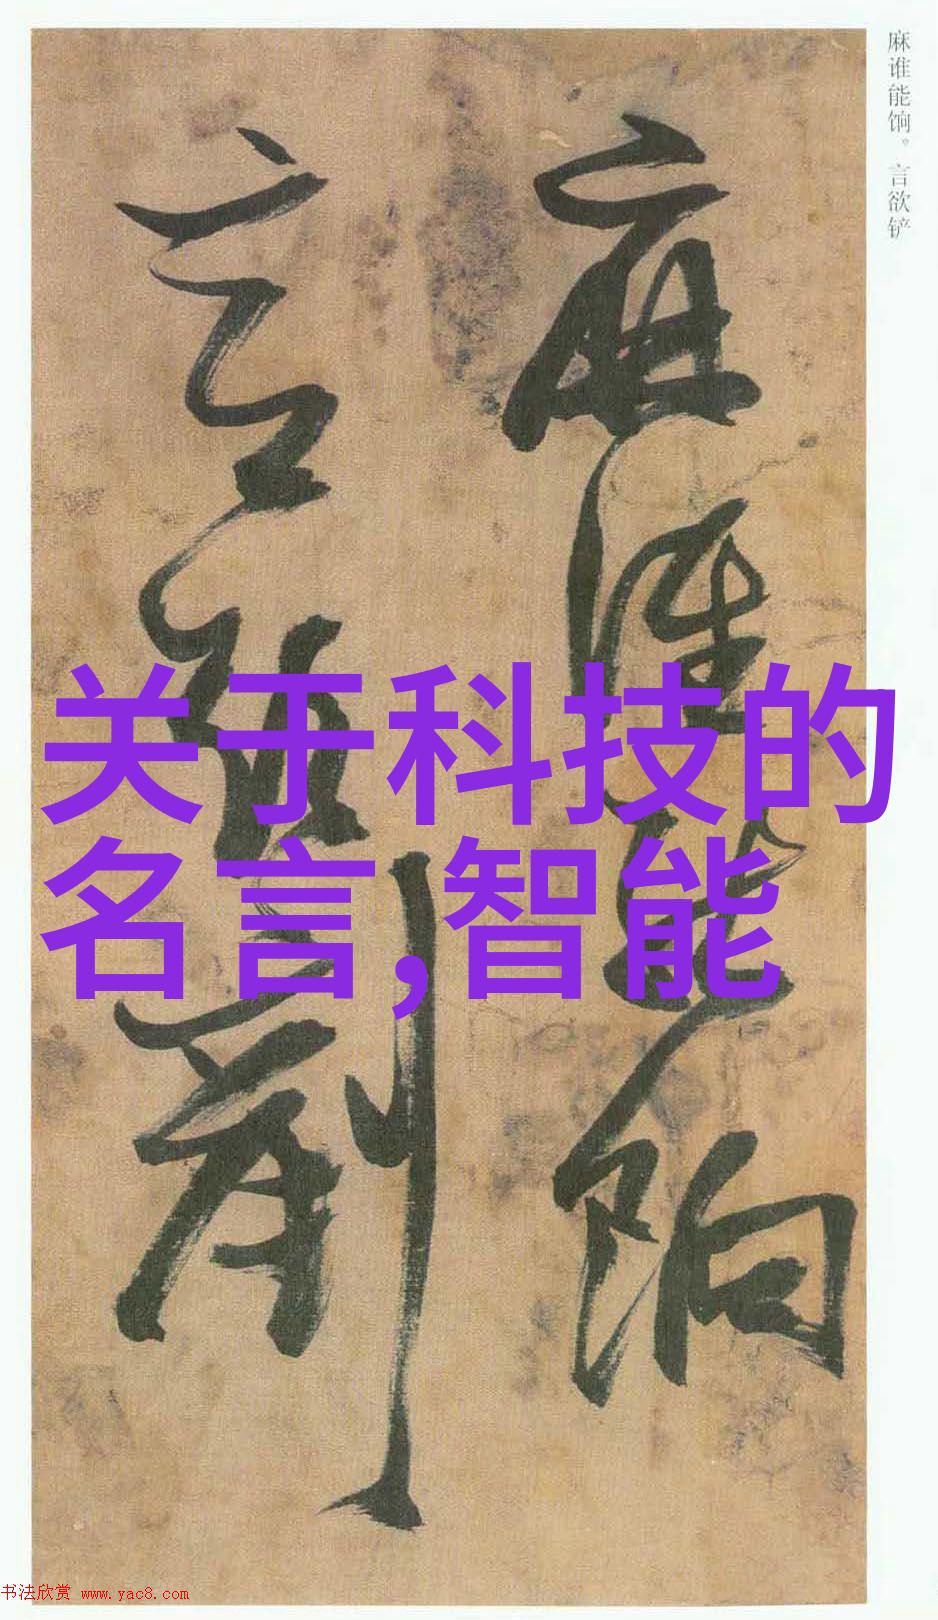 麻谁能饷。言欲铲
麻谁能饷
言欲剷
关于科技的
名言,智能
书法欣赏 www.yac8.com